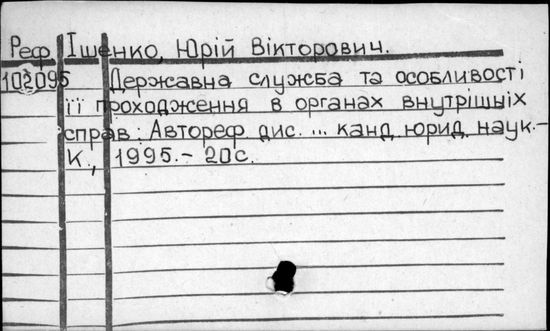 Реф Іщенко, Юрій Вікторович.
102095 Державна служба та особливості
її проходження в органах внутрішніх
справ: Автореф. дис. ... канд. юрид. наук.-
К., 1995.- 20с.